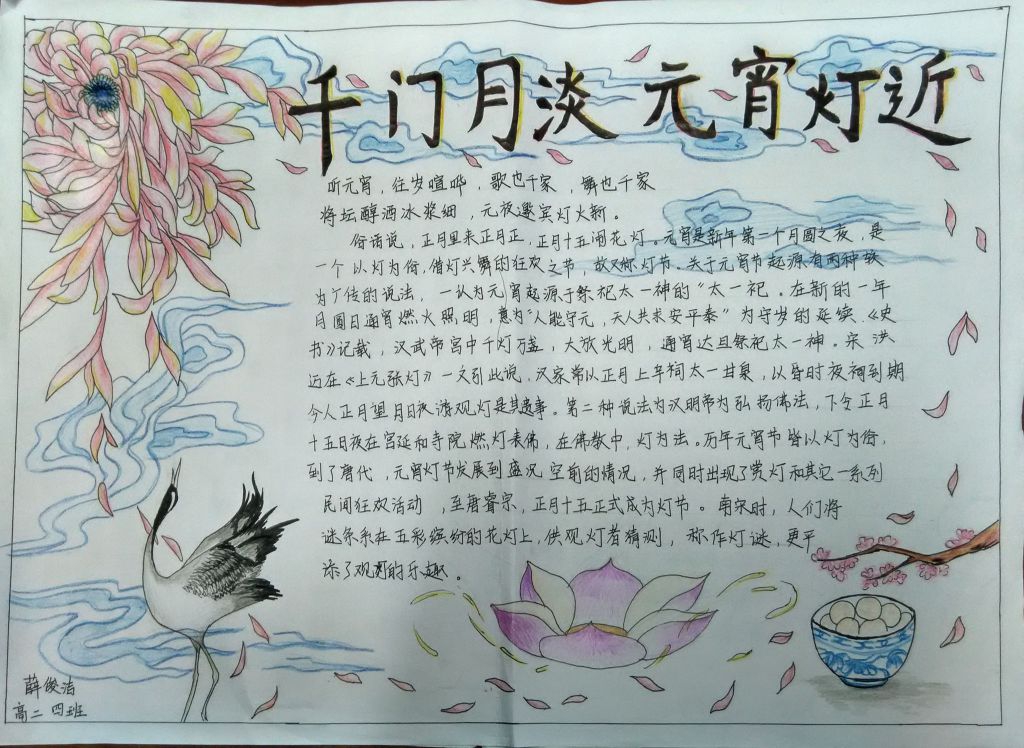 千门月淡 元宵灯近
听元宵，往岁喧哗，歌也千家，舞也千家
将坛醇酒冰浆细，元夜邀宾灯火新。
俗话说，正月里来正月正，正月十五闹花灯。元宵是新年第一个月圆之夜，是
一个以灯为俗，借灯兴舞的狂欢之节，故又称灯节。关于元宵节起源有两种较
为广传的说法，一认为元宵起源于祭祀太一神的"太一祀。在新的一年
月圆日通宵燃火照明，意为"人能守元，天人共求安平泰"为守岁的延续.《史
书》记载，汉武帝宫中千灯万盏，大放光明，通宵达旦祭祀太一神。宋 洪
迈在《上元张灯》一文引此说，汉家常以正月上辛祠太一甘泉，以昏时夜祠到期
今人正月望月日夜游观灯是其遗事。第二种说法为汉明帝为弘扬佛法，下令正月
十五日夜在宫廷和寺院燃灯表佛，在佛教中，灯为法。历年元宵节皆以灯为俗，
到了唐代，元宵灯节发展到盛况空前的情况，并同时出现了赏灯和其它一系列
民间狂欢活动，至唐睿宗，正月十五正式成为灯节。南宋时，人们将
谜条系在五彩缤纷的花灯上，供观灯者猜测，称作灯谜，更平
添了观灯的乐趣。
薛俊洁
高二 四班